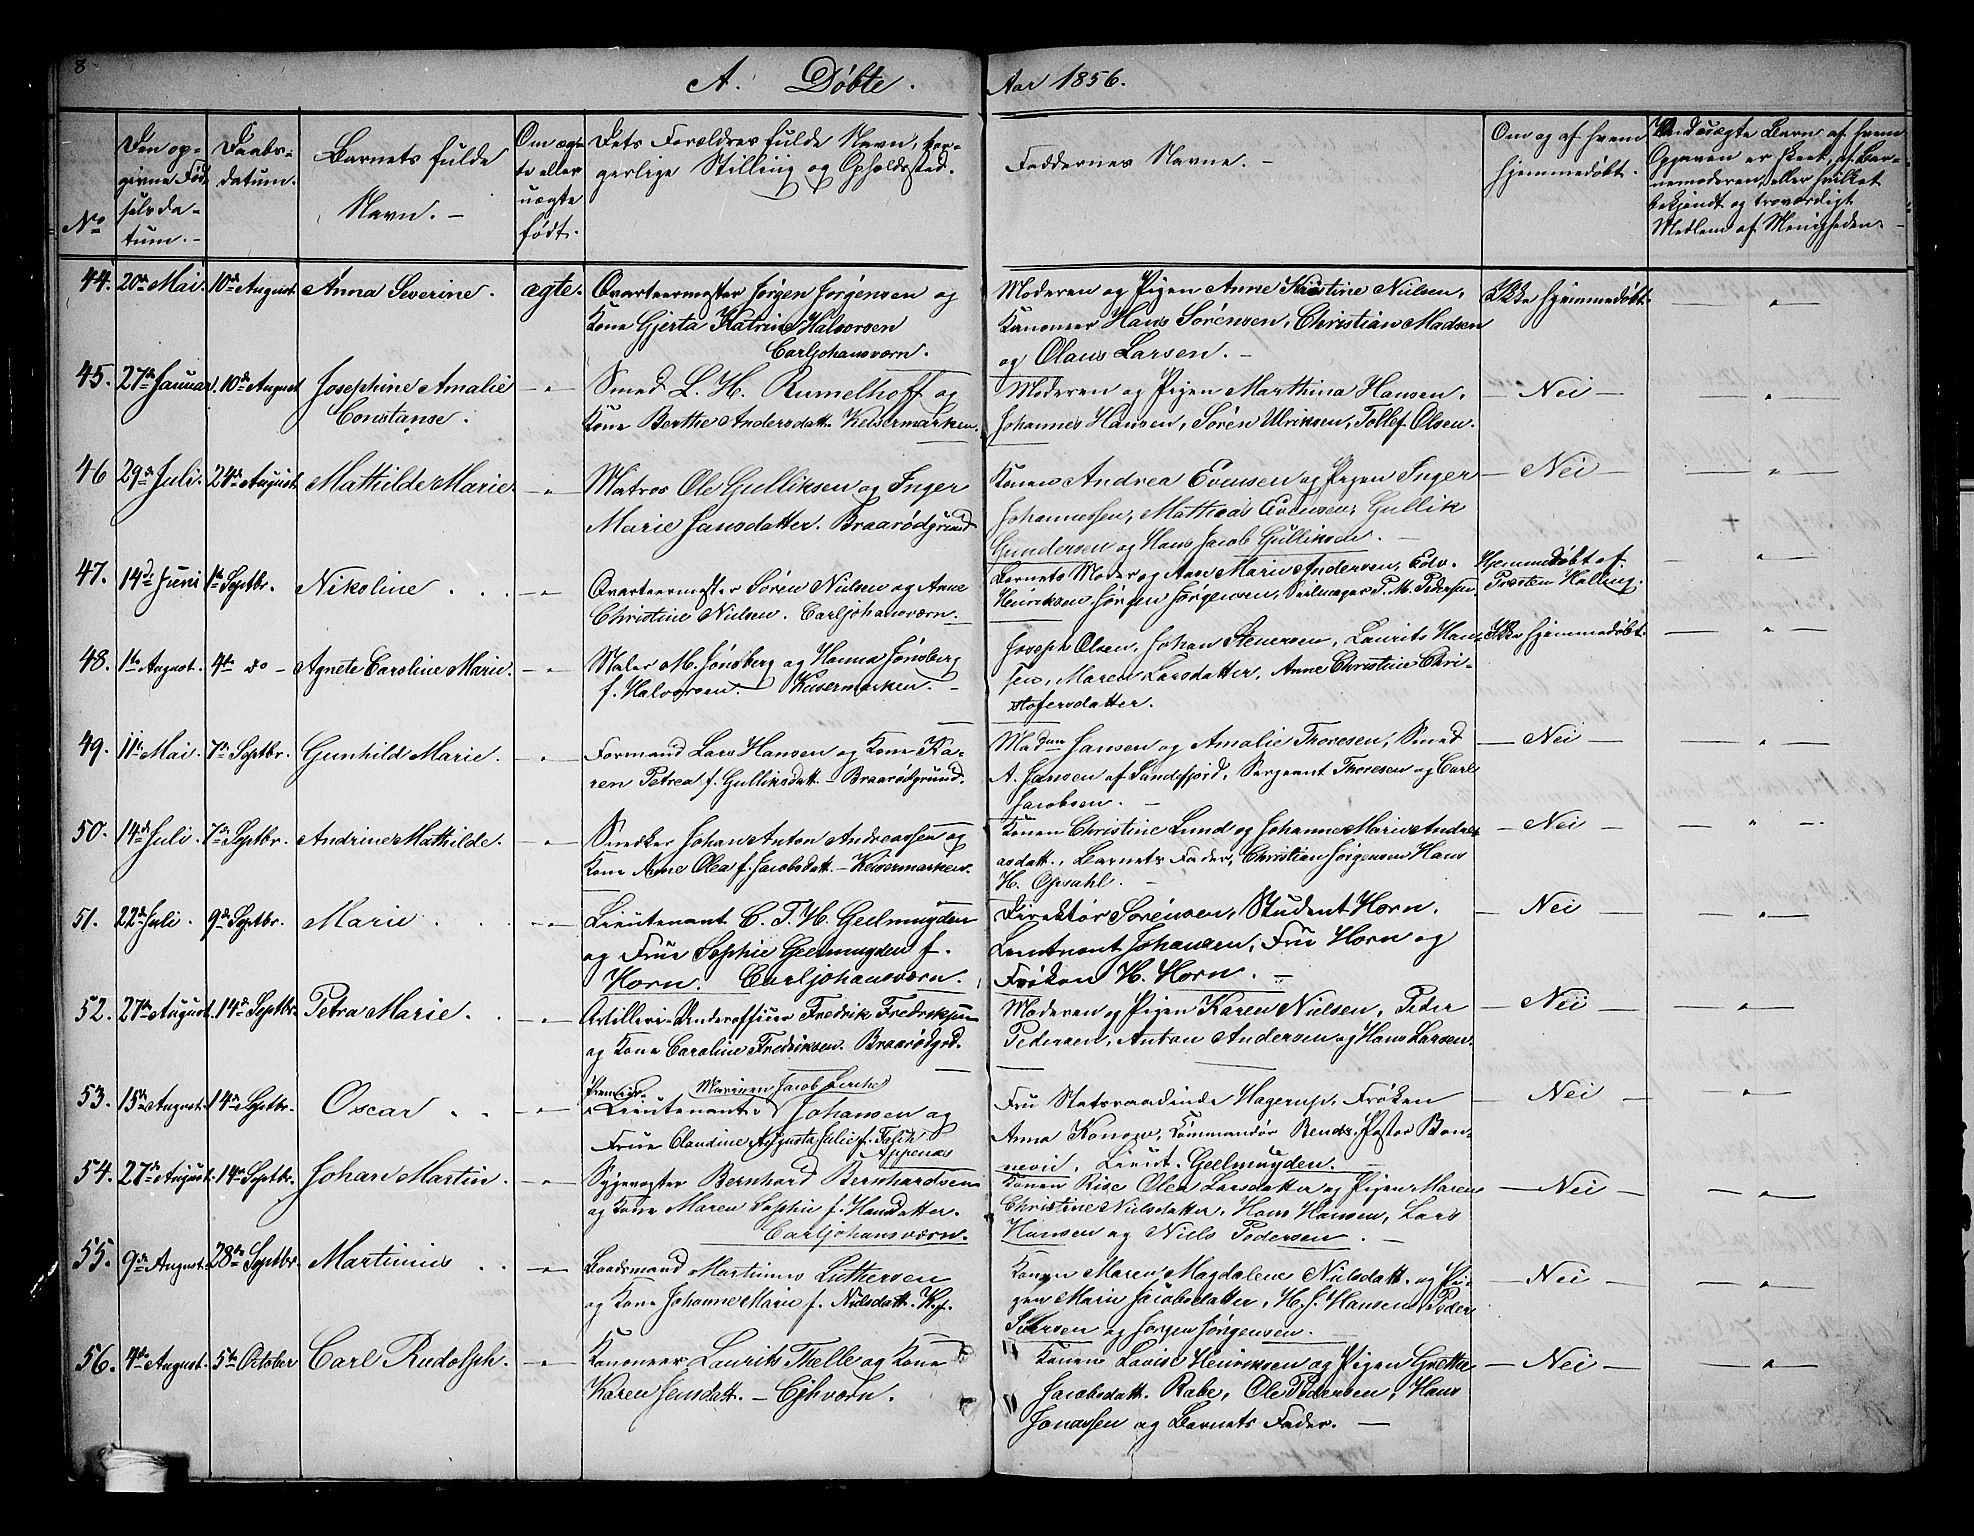 8
A. Døbte. Aar 1856.
No
Den op-
givne Fød-
selsda-
tum. -
Daabs-
datum.
Barnets fulde
Navn. -
Om æg-
te eller
uægte
født.
Dets Forældres fulde Navn, bor-
gerlige Stilling og Opholdssted.
Faddernes Navne. -
Om og af hvem
hjemmedøbt.
Ved uægte Barn, af hvem
Opgaven er skeet, af Bar-
nemoderen, eller hvilket
bekjendt og troværdigt
Medlem af Menigheden. -
44. 20de Mai. 10de August. Anna Severine. ægte. Qvarteermester Jørgen Jørgensen og
Kone Gjerta Katrine Halvorsen
Carljohansværn.
Moderen og Pigen Anne Kristine Nielsen,
Kanoneer Hans Sørensen, Christian Madsen
og Olaus Larsen. -
Ikke hjemmedøbt. — " —
45. 27de Januar. 10de August Josephine Amalie
Constanse.
- " -
Smed L. H. Rumelhoff og
Kone Berthe Andersdatt. Keisermarken.
Moderen og Pigen Marthina Hansen,
Johannes Hansen, Søren Ulriksen, Tollef Olsen.
— Nei — — " —
46 29de Juli. 24de August. Mathilde Marie. - " -
Matros Ole Gulliksen og Inger
Marie Hansdatter. Braarødgrund
Konen Andrea Evensen og Pigen Inger
Johannessen, Mathias Evensen, Gullik
Gundersen og Hans Jacob Gulliksen. -
— Nei — — " —
47. 14de Juni 1ste Septbr. Nikoline . . - " -
Qvarteermester Søren Nielsen og Anne
Christine Nielsen. Carljohansværn. -
Barnets Moder og Ane Marie Andersen, Edv.
Henriksen, Jørgen Jørgensen, Seilmager P. M. Pedersen.
Hjemmedøbt af
Præsten Holling. — " —
48. 1ste August. 4de do - Agnete Caroline Marie. - " -
Maler M. Jönsberg og Hanna Jönsberg
f. Halvorsen. Keisermarken. -
Joseph Olsen, Johan Stenersen, Laurits Han-
sen, Maren Larsdatter, Anne Christine Chri-
stofersdatter.
Ikke hjemmedøbt. — " —
49. 11te Mai. 7de Septbr. Gunhild Marie. - " -
Formand Lars Hansen og Kone Ka-
ren Petrea f. Gulliksdatt. - Braarødgrund.
Madam Jansen og Amalie Thoresen, Smed
A. Jansen af Sandefjord, Sergeant Thoresen og Carl
Jacobsen. -
— Nei — — " —
50. 14de Juli. 7de Septbr. Andrine Mathilde. - " -
Snedker Johan Anton Andreassen og
Kone Anne Olea f. Jacobsdatt. - Keisermarken.
Konen Christine Lund og Johanne Marie Andre-
asdatt., Barnets Fader, Christian Jørgensen Hans
H. Opsahl. -
— Nei — — " —
51. 22de Juli. 9de Septbr. Marie . . - " -
Lieutenant C. T. H. Geelmuyden
og Frue Sophie Geelmuyden f.
Horn. Carljohansværn.
Direktør Sorensen, Student Horn.
Leutnant Johansen, Fru Horn og
Frøken H. Horn. -
— Nei — — " —
52. 27de August. 14de Septbr. Petra Marie. . - " -
Artilleri-Underofficer Fredrik Fredriksen
og Kone Caroline Fredriksen. Braarødgrd.
Moderen og Pigen Karen Nielsen, Peder
Pedersen, Anton Andersen og Hans Larsen.
— Nei — — " —
53. 15de August. 14de Septbr. Oscar . . - " -
Premier- Marinen Jacob Lerche
Lieutenant i Johansen og
Frue Claudine Augusta Julie f. Fasch
Appenæs
Fru Statsraadinde Hagerup, Frøken
Anna Konow, Commandør Bends, Pastor Bon-
nevie, Lieut. Geelmuyden. -
— Nei — — " —
54. 27de August. 14de Septbr. Johan Martin. - " -
Sygevogter Bernhard Bernhardsen
og Kone Maren Sophie f. Hansdatter.
Carljohansværn.
Konen Rise Olea Larsdatter og Pigen Maren
Christine Nielsdatter, Hans Hansen, Lars
Hansen og Niels Pedersen. -
— Nei — — " —
55. 9de August. 28de Septbr. Martinius . . - " -
Baadsmand Martinus Luthersen
og Kone Johanne Marie f. Nielsdatt. K.j.
Konen Maren Magdalene Nielsdatt. og Pi-
gen Marie Jacobsdatter, H. J. Hansen, Peder
Iversen og Jørgen Jørgensen. -
— Nei — — " —
56. 4de August. 5te October Carl Rudolph. - " -
Kanoneer Laurits Thelle og Kone
Karen Jensdatt. - Cjhværn.
Konen Lovise Henriksen og Pigen Grethe
Jacobsdatt. Rabe, Ole Pedersen, Hans
Jonassen og Barnets Fader. —
— Nei — — " —